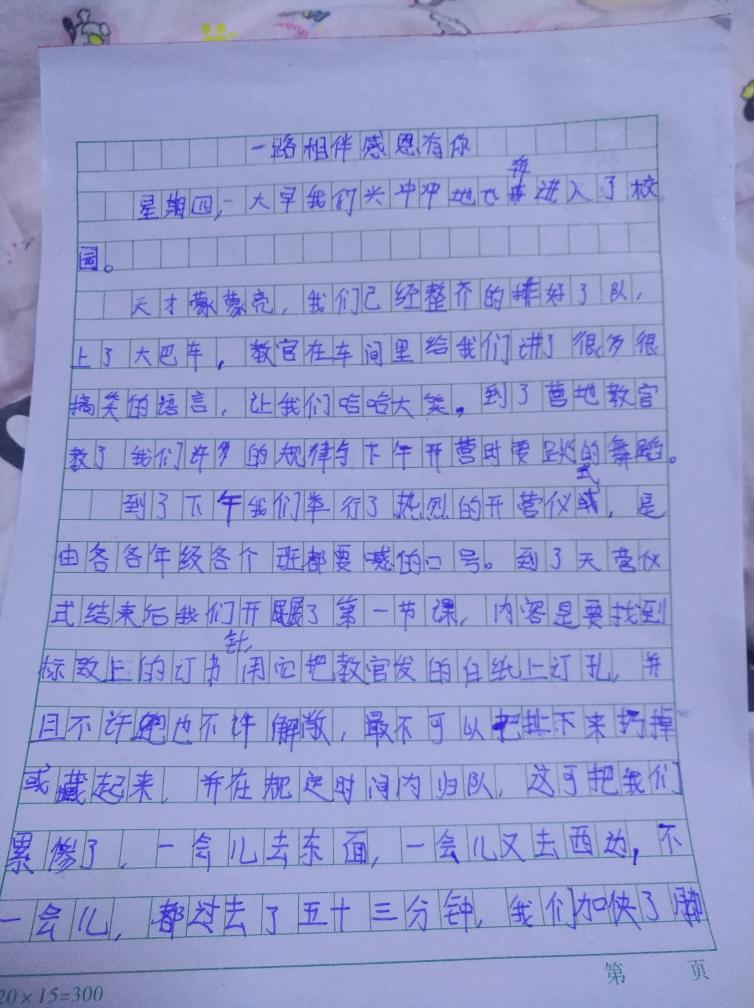 一路相伴感恩有你
星期四,一大早我们兴冲冲地飞奔进入了校
园。
天才蒙蒙亮，我们已经整齐的排好了队，
上了大巴车，教官在车间里给我们讲了很多很
搞笑的语言，让我们哈哈大笑。到了营地教官
教了我们许多的规律与下午开营时要跳的舞蹈。
到了下午我们举行了热烈的开营仪式，是
由各各年级各个班都要喊的口号。到了天营仪
式结束后我们开展了第一节课，内容是要找到
标致上的订书针，用它把教官发的白纸上订孔，并
且不许跑也不许解散，最不可以把扯下来扔掉
或藏起来，并在规定时间内归队，这可把我们
累惨了，一会儿去东面，一会儿又去西边，不
一会儿，都过去了五十三分钟，我们加快了脚
第 页
20×15=300